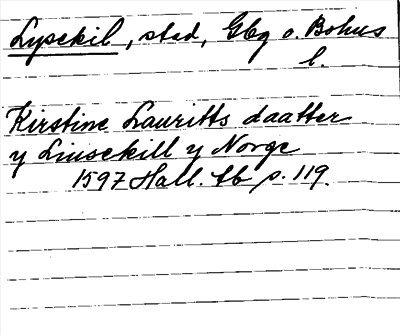 Lysekil, stad, Gbg o. Bohus
l.
Kirstine Lauritts daatter
y Liusekill y Norge
1597 Hall. tb p. 119.